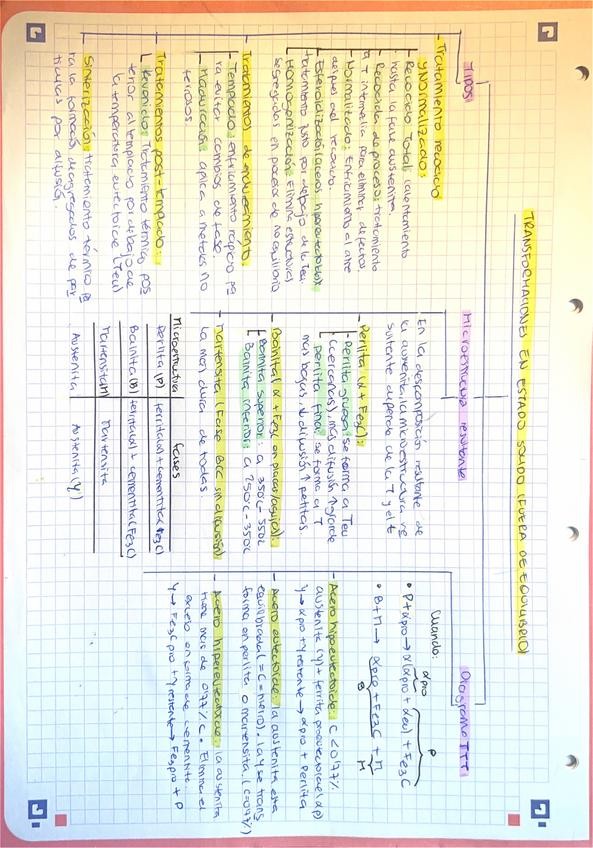 TRANSFORMACIONES EN ESTADO SÓLIDO (FUERA DE EQUILIBRIO)
TIPOS
-Tratamiento recocido
y Normalizado:
Recocido Total: calentamiento
hasta la fase austenita.
Recocido de proceso: tratamiento
a T intermedia para eliminar defectos
Normalizado: Enfriamiento al aire
después del recocido.
Esferoidización (aceros hipereutectoides)
tratamiento justo por debajo de la Teu
Homogenización: Elimina estructuras
segregadas en procesos de no equilibrio
-Tratamientos de endurecimiento:
Templado: enfriamiento rápido pa
ra evitar cambios de fase.
Maduración: aplica a metales no
férreos.
-Tratamientos post-templado:
Revenido: Tratamiento térmico pos
terior al templado por debajo de
la temperatura eutectoide (Teu)
Sinterización: tratamiento térmico pa
ra la formación de agregados de par
tículas por difusión.
Microestructura resultante
En la descomposición resultante de
la austenita, la microestructura re
sultante depende de la T y el t
-Perlita (α + Fe3C):
Perlita gruesa: se forma a Teu
(cercanas), más difusión ↑ grande
perlita fina: se forma a T
más bajas, ↓ difusión ↑ petitas
-Bainita (α + Fe3C en placas/agujas):
Bainita superior: a 350ºC - 550ºC
Bainita inferior: a 250ºC - 350ºC
-Martensita (Fase BCC sin difusión)
la más dura de todas
Microestructura fases
Perlita (P) ferrita(α) + cementita (Fe3C)
Bainita (B) ferrita(α) + cementita (Fe3C)
Martensita (M) Martensita
Austenita Austenita (γ)
Diagrama TTT
Cuando:
αpro P
• P + αpro → α(αpro + αeu) + Fe3C
• B + M → αpro + Fe3C + M
B M
-Acero hipoeutectoide: C < 0'77%.
austenita (γ) + ferrita proeutectoide (αp)
γ → αpro + γ restante → αpro + perlita
-Acero eutectoide: la austenita está
equilibrada (= C = hierro). La γ se trans
forma en perlita o martensita. (C = 0'77%)
-Acero hipereutectoide: la austenita
tiene más de 0'77% C. Elimina el
exceso en forma de cementita.
γ → Fe3C pro + γ restante → Fe3pro + P